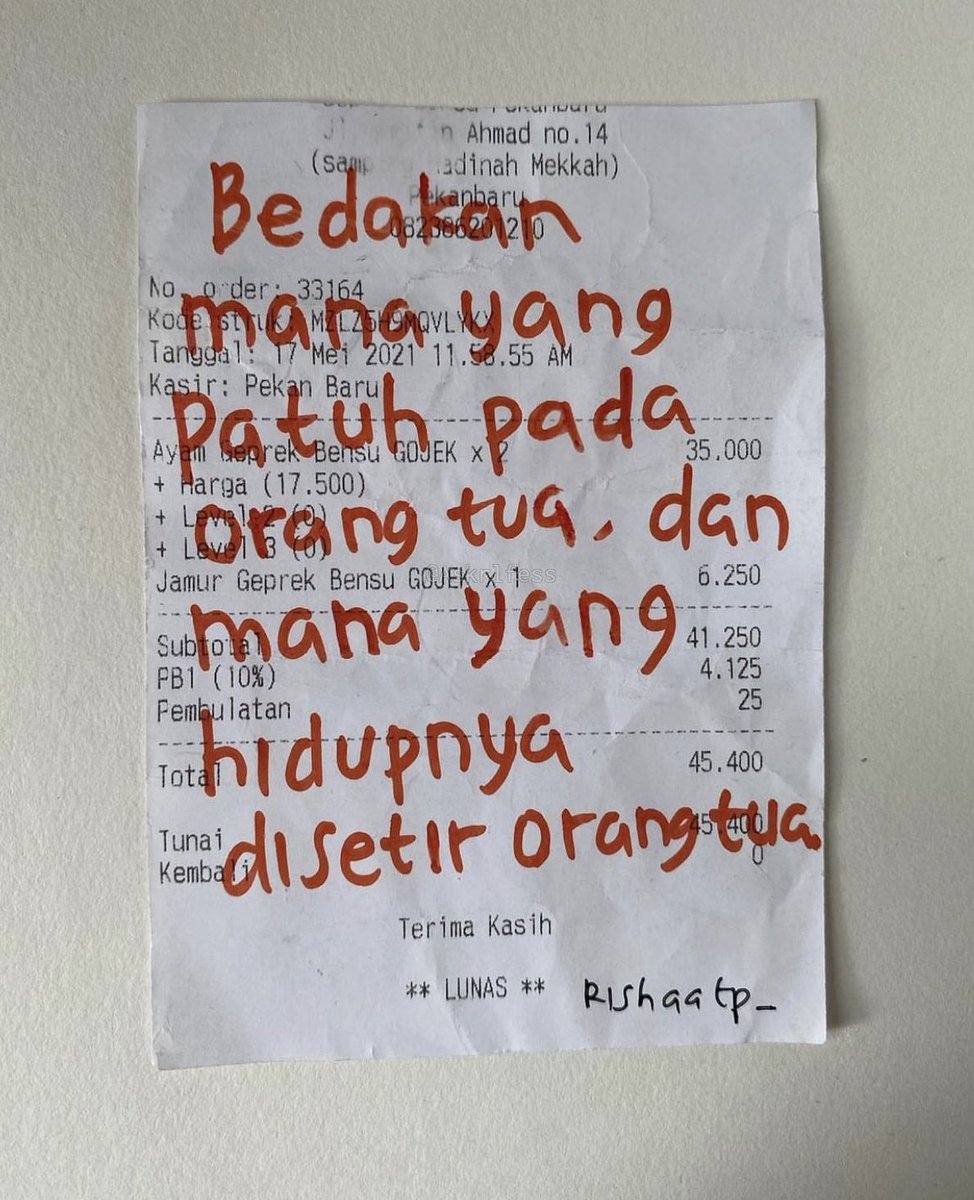 Pekanbaru
Ahmad no.14
Mekkah)
Pekanbaru
082386201210
Bedakan
mana yang
patuh pada
orang tua, dan
mana yang
hidupnya
disetir orangtua.
No. order: 33164
Kode struk:
Tanggal: 17 Mei 2021 11.58.55 AM
Kasir: Pekan Baru
Ayam Geprek Bensu GOJEK x 2 35.000
+ Harga (17.500)
+ Level 2 (0)
+ Level 3 (0)
Jamur Geprek Bensu GOJEK x 1 6.250
Subtotal 41.250
PB1 (10%) 4.125
Pembulatan 25
Total 45.400
Tunai 45.400
Kembali 0
Terima Kasih
** LUNAS **
Rishaatp_